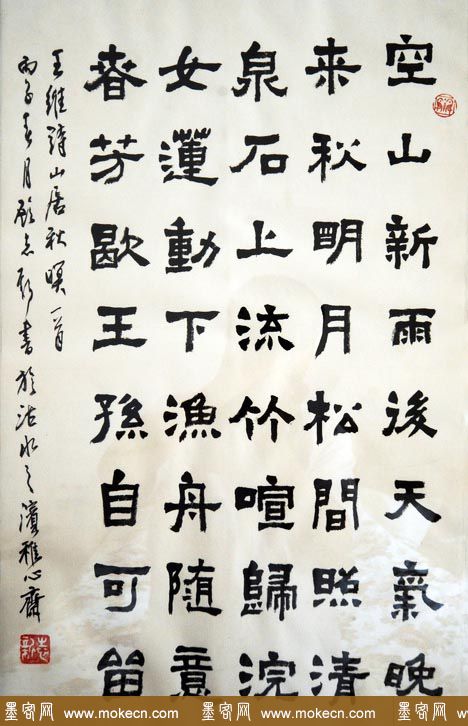 空山新雨後天氣晚
来秋明月松間照清
泉石上流竹喧歸浣
女蓮動下漁舟随意
春芳歇王孫自可留
王維詩山居秋暝一首
丙子春月顧志新書於沽水之濱雅心齋
墨客网 www.mokecn.com 墨客网 www.mokecn.com 墨客网 w